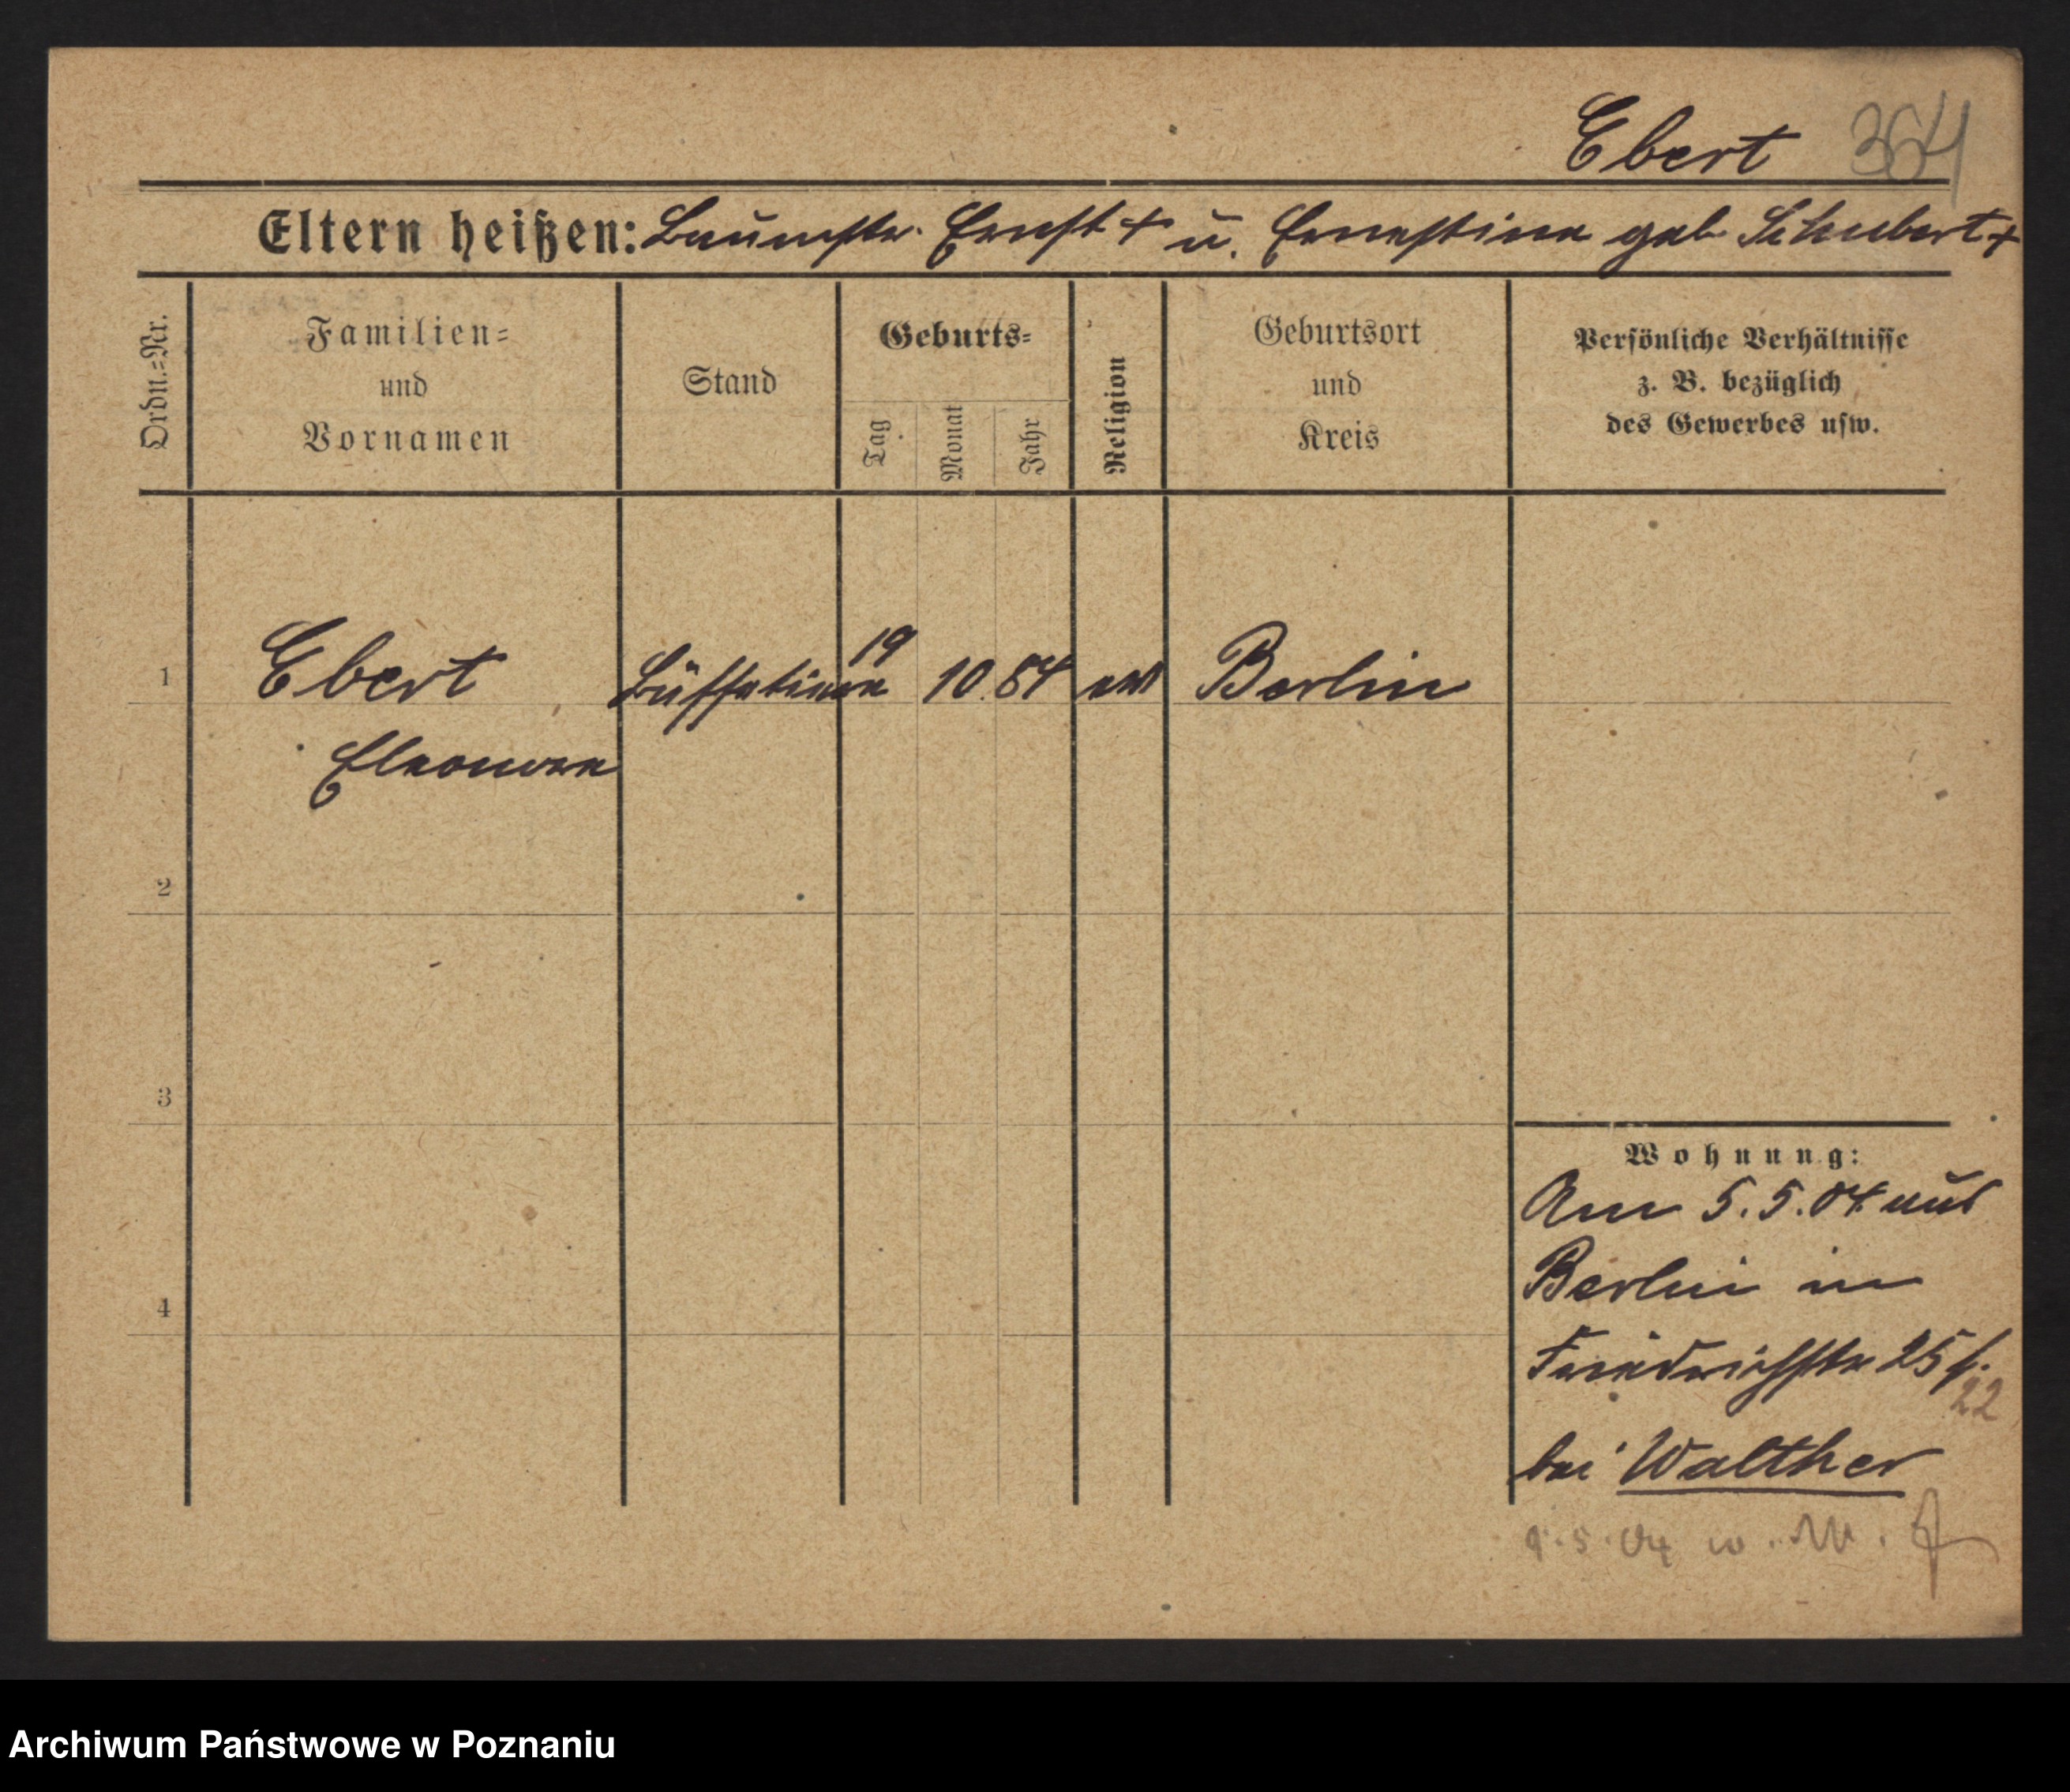 Ebert 364
Eltern heißen: Baumstr. Ernst + u. Ernestine geb Schubert +
Ordn.=Nr.
Familien=
und
Vornamen
Stand
Geburts=
Tag
Monat
Jahr
Religion
Geburtsort
und
Kreis
Persönliche Verhältnisse
z. B. bezüglich
des Gewerbes usw.
1 Ebert Büffetiere 19 10. 84 ev Berlin
Eleonore
2
3
4
Wohnung:
Am 5.5.04 aus
Berlin in
Friedrichstr 25
22
bei Walther
5.04
Archiwum Państwowe w Poznaniu